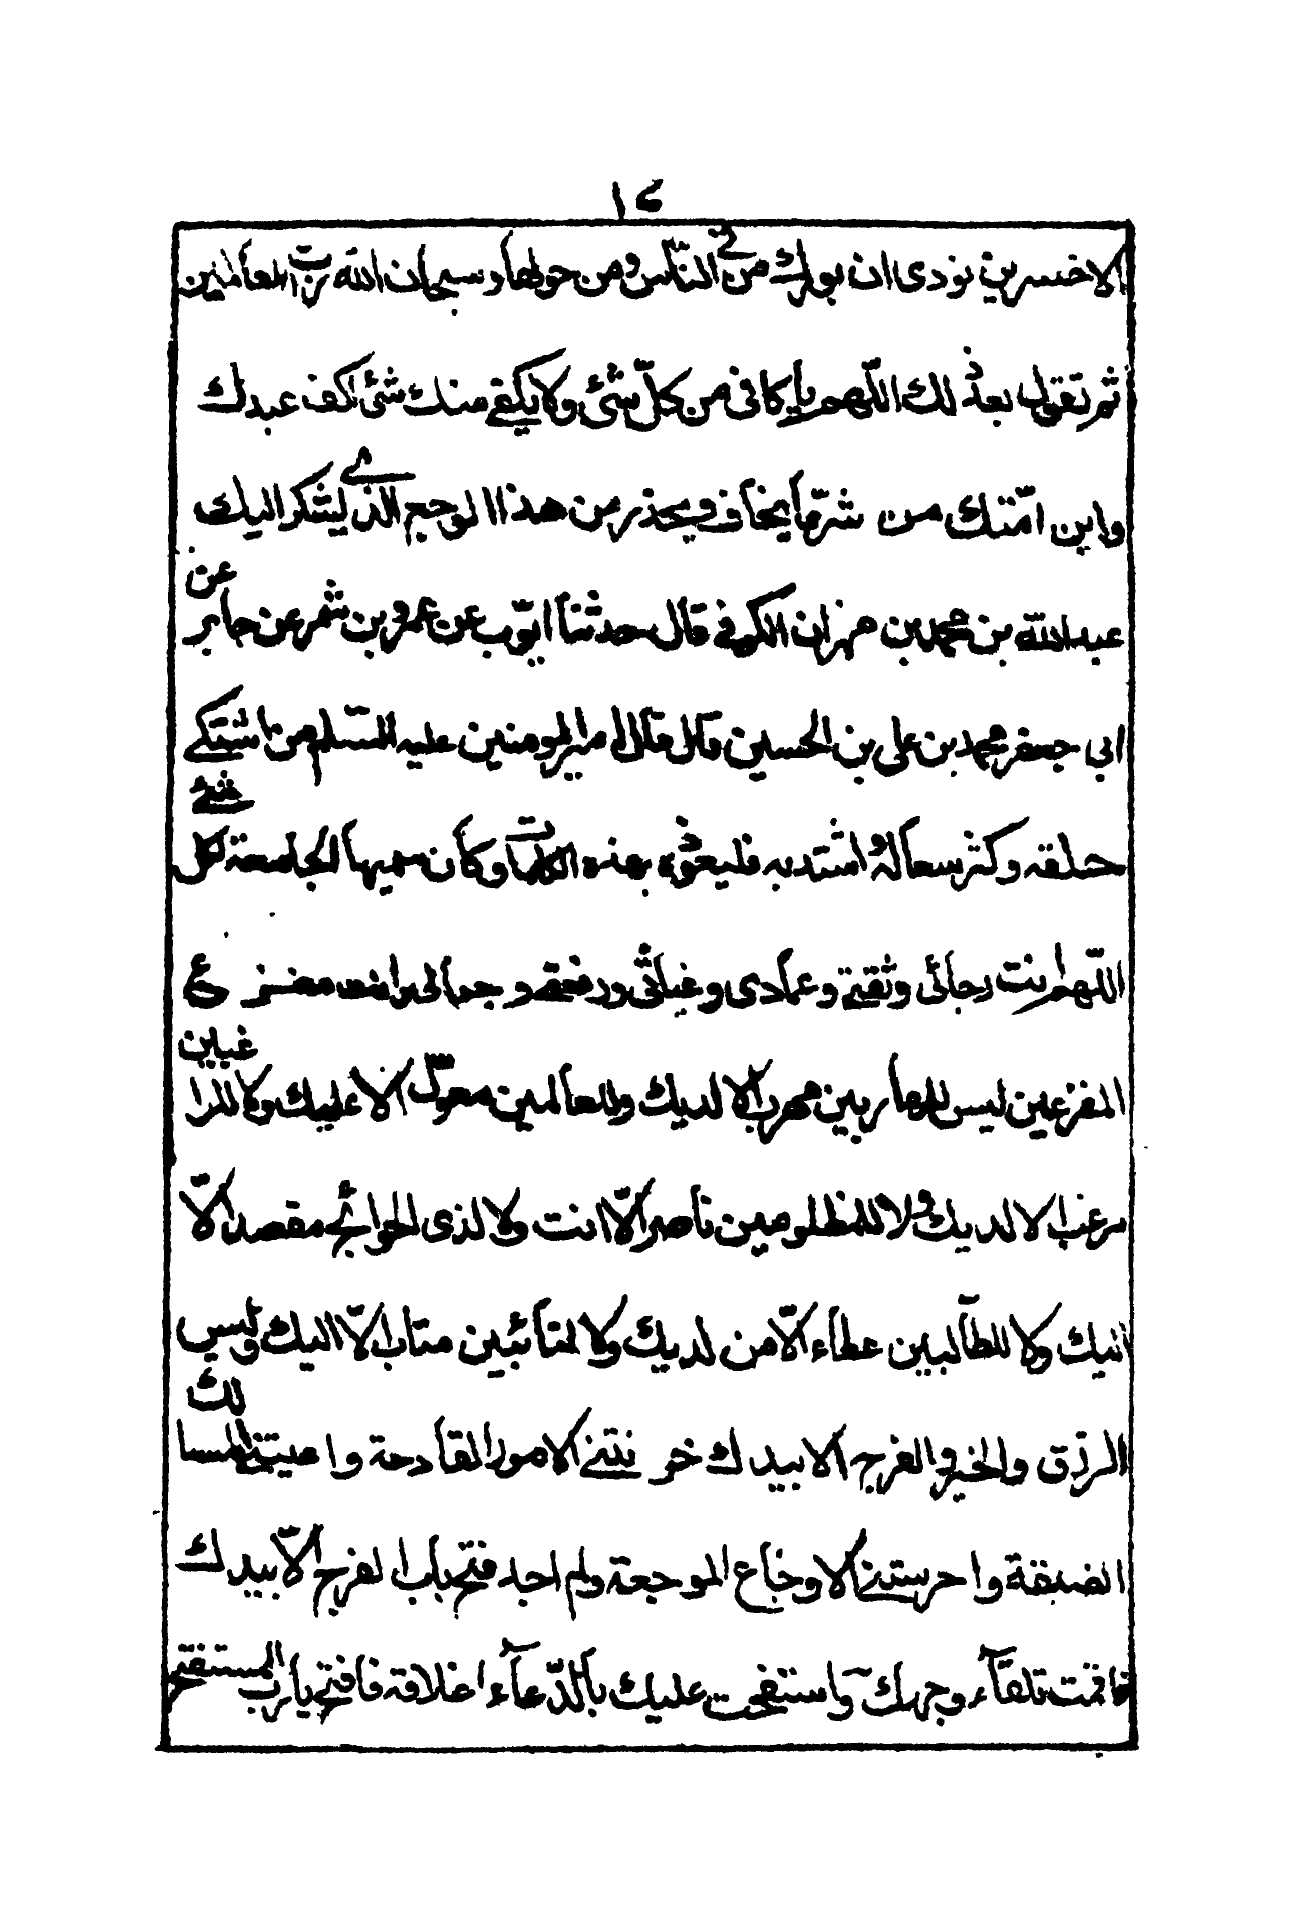 ١٤
الاخسرين نودى ان بورك من في النّاس ومن حولها وسبحان الله ربّ العالمين
ثم تقول بعد ذلك اللّهم يا كافى من كلّ شئ ولا يكفى منك شئ اكف عبدك
وابن امتك من شرّ ما يخاف ويحذر من هذا الوجع الذي يشكرا اليك
عبد الله بن محمد بن مهران الكوفى قال حدثنا ايوّب عن عمرو بن شمر عن جابر عن
ابى جعفر محمد بن على بن الحسين قال قال امير المومنين عليه السّلم من اشتكى
حلقه وكثر سعاله واشتد به فليعوّذه بهذه الكلمات وكان سميها الجامعة لكل شئ
اللّهم انت رجائى وثقتى وعمادى وغياثى ورفعتى وجمالى مفزع
المفزعين ليس للهاربين مهرب الا لديك ولا للعالمين معوّل الا عليك ولا للراغبين
مرغب الا لديك ولا للمظلومين ناصر الّا انت ولا لذى الحوائج مقصد الّا
اليك ولا للطالبين عطاء الّا من لديك ولا للتائبين متاب الّا اليك وليس
الرزق والخير والفرج الا بيدك لك
الامور القادحة المسا
الضيقة واحرستنى الاوجاع الموجعة ولم اجد فتح باب الفرج الّا بيدك
فاقمت تلقاء وجهك واستفتحت عليك بالدّعاء اغلاقه فافتح يا ربّ المستفتح